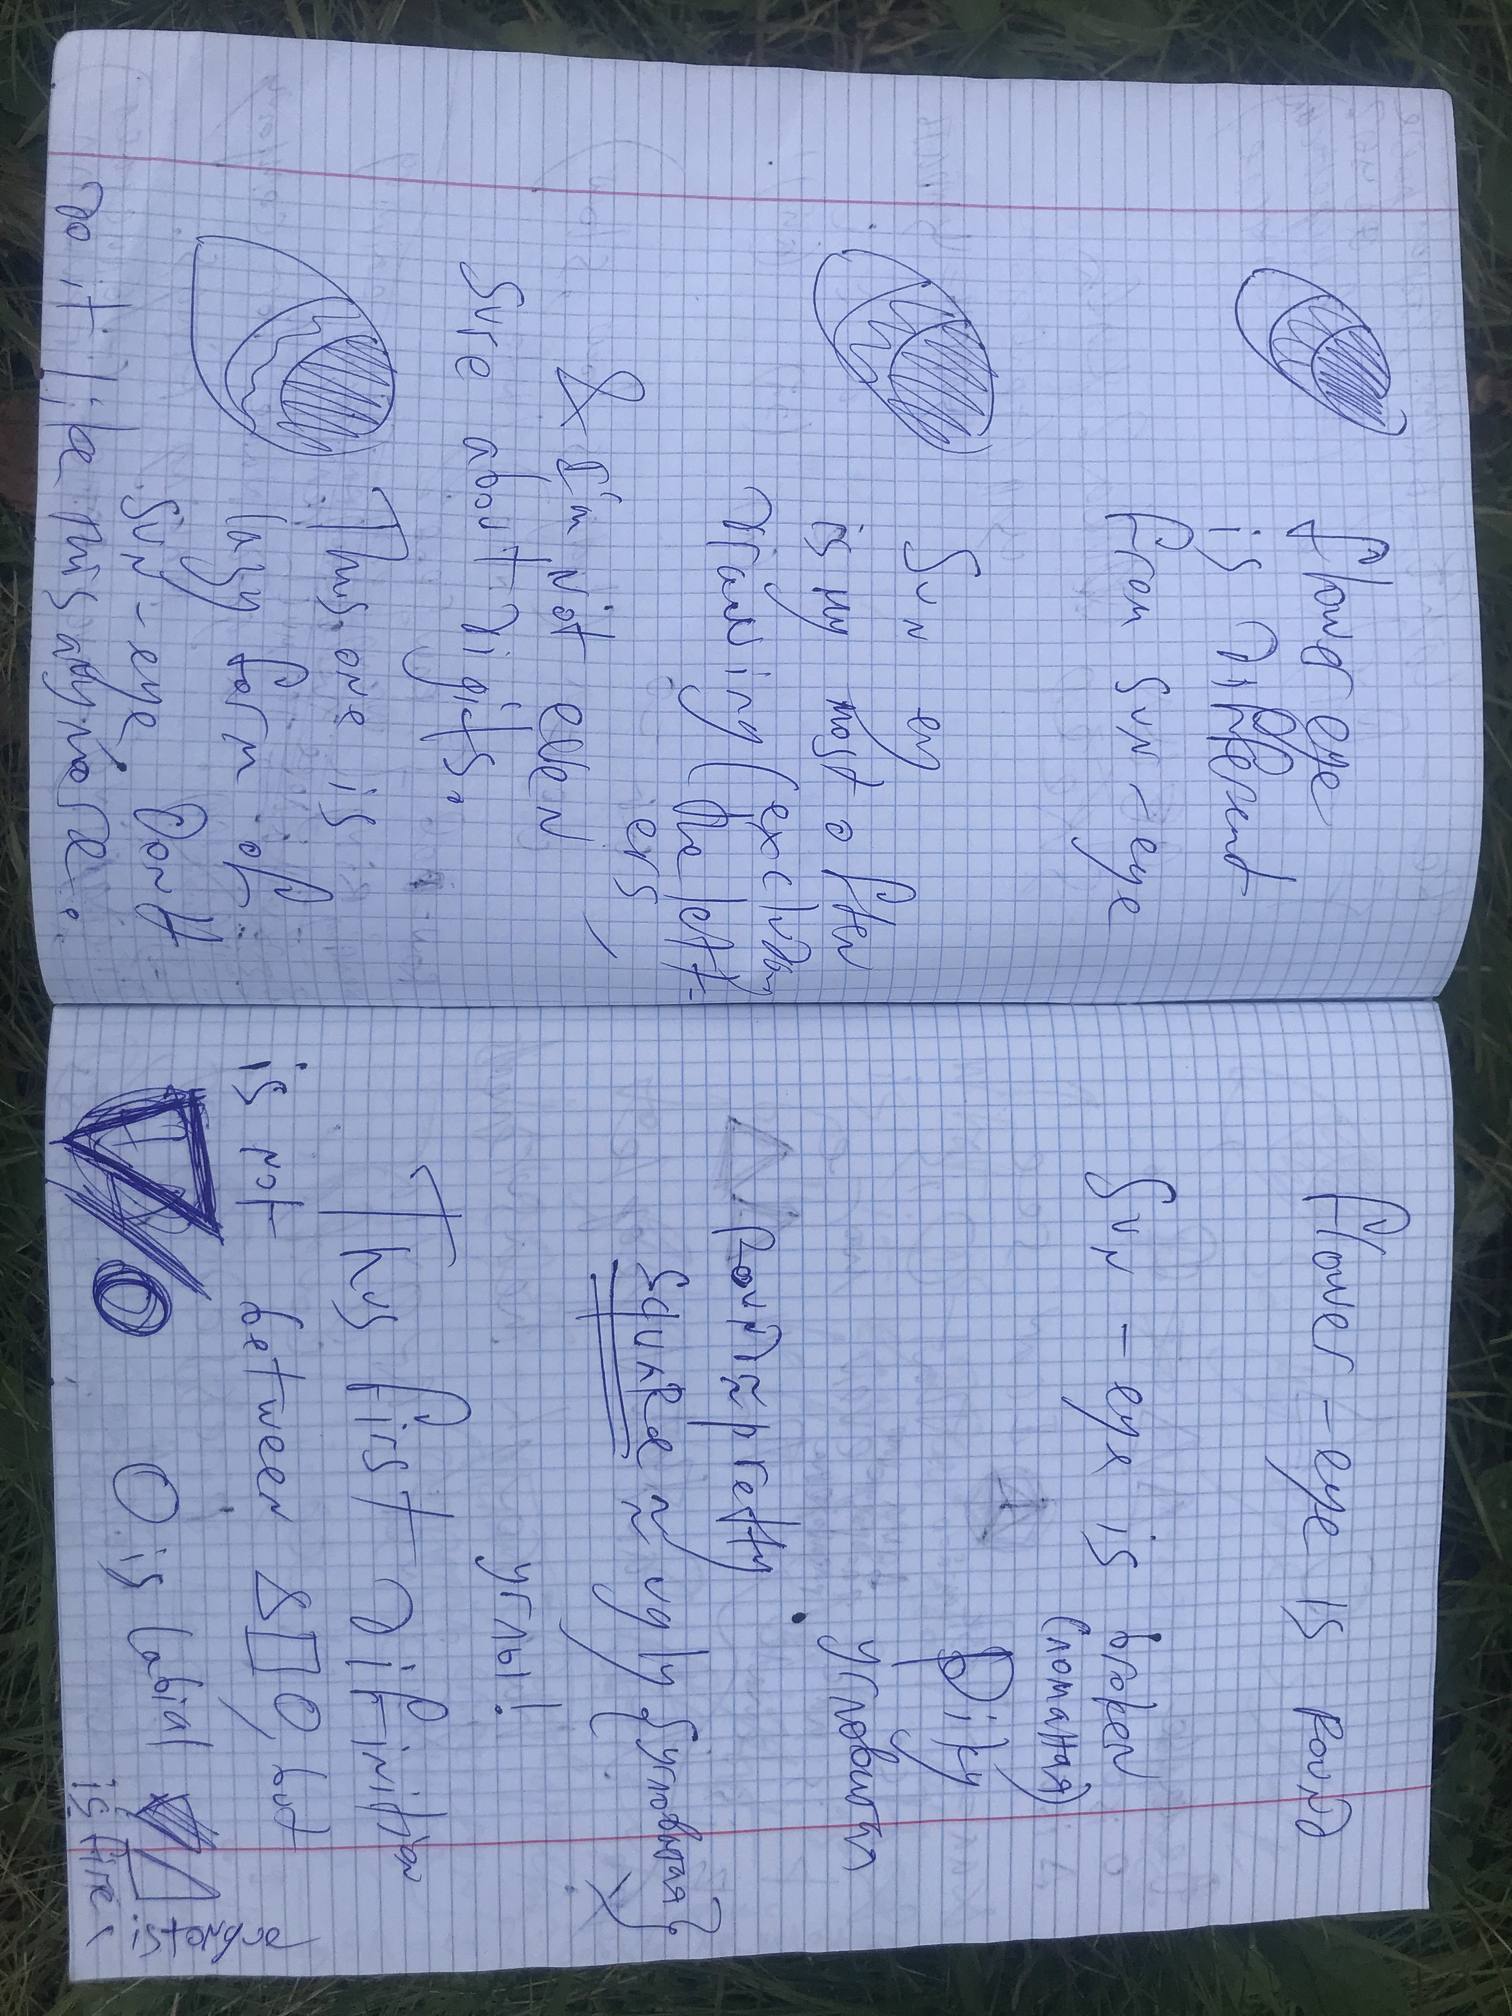 flower eye
is differend
from sun-eye
Sun ey
is my most often
drawing (excluding
the lett-
ers
& I'm not even
sure about digits.
This one is
lazy form of
sun-eye. Don't
do it like this anymore.
Flower-eye is round
Sun-eye is broken
(ломаная)
Round ≈ pretty
≈ ugly {угловытая?}
углы!
Thus first difinition
is not between &□O, but
△/O O is labial
is tongue
is fire